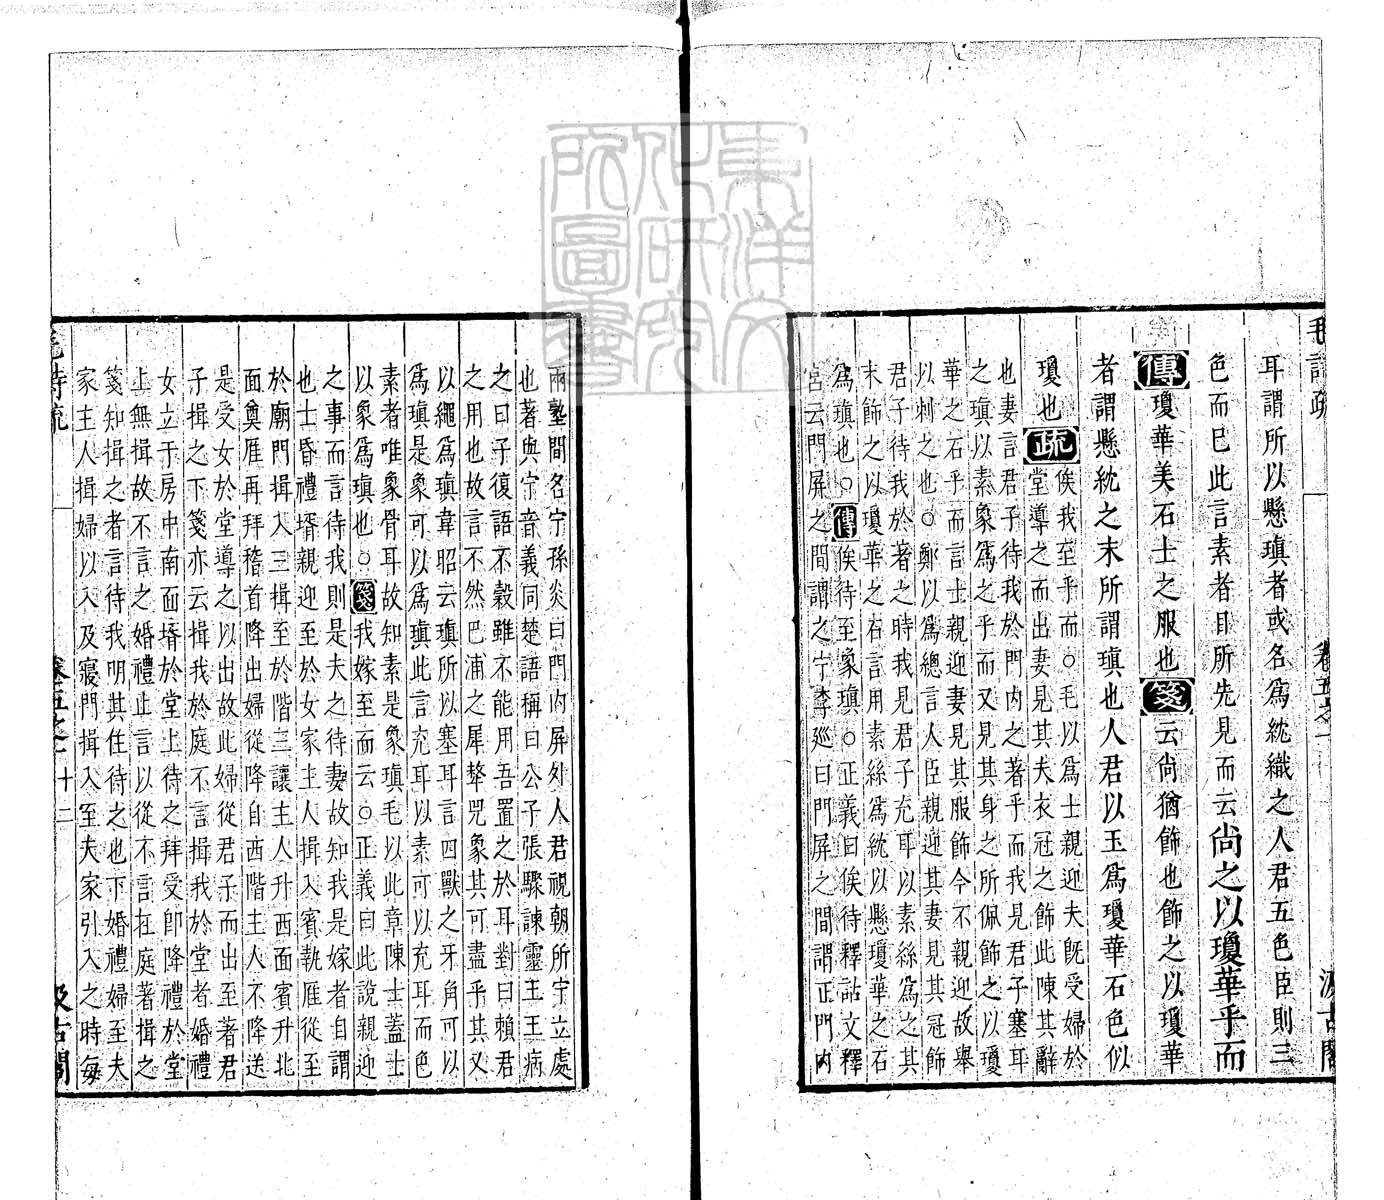 耳謂所以懸瑱者或名爲紞織之人君五色臣則三
色而已此言素者目所先見而云尚之以瓊華乎而
傳瓊華美石士之服也箋云尚猶飾也飾之以瓊華
者謂懸紞之末所謂瑱也人君以玉爲瓊華石色似
瓊也疏
俟我至乎而○毛以爲士親迎夫旣受婦於
堂導之而出妻見其夫衣冠之飾此陳其辭
也妻言君子待我於門內之著乎而我見君子塞耳
之瑱以素象爲之乎而又見其身之所佩飾之以瓊
華之石乎而言士親迎妻見其服飾今不親迎故舉
以刺之也○鄭以爲總言人臣親迎其妻見其冠飾
君子待我於著之時我見君子充耳以素絲爲之其
末飾之以瓊華之石言用素絲爲紞以懸瓊華之石
爲瑱也○傳俟待至象瑱○正義曰俟待釋詁文釋
宮云門屏之間謂之宁李巡曰門屏之間謂正門內
兩塾間名宁孫炎曰門內屏外人君視朝所宁立處
也著與宁音義同楚語稱曰公子張驟諫靈王王病
之曰子復語不穀雖不能用吾置之於耳對曰賴君
之用也故言不然巴浦之犀犛兕象其可盡乎其又
以繩爲瑱韋昭云瑱所以塞耳言四獸之牙角可以
爲瑱是象可以爲瑱此言充耳以素可以充耳而色
素者唯象骨耳故知素是象瑱毛以此章陳士蓋士
以象爲瑱也○箋我嫁至而云○正義曰此說親迎
之事而言待我則是夫之待妻故知我是嫁者自謂
也士昏禮壻親迎至於女家主人揖入賓執雁從至
於廟門揖入三揖至於階三讓主人升西面賓升北
面奠雁再拜稽首降出婦從降自西階主人不降送
是受女於堂導之以出故此婦從君子而出至著君
子揖之下箋亦云揖我於庭不言揖我於堂者婚禮
女立于房中南面壻於堂上待之拜受卽降禮於堂
上無揖故不言之婚禮止言以從不言在庭著揖之
箋知揖之者言待我明其住待之也下婚禮婦至夫
家主人揖婦以入及寢門揖入至夫家引入之時每
毛詩疏 卷五之一 十二 汲古閣